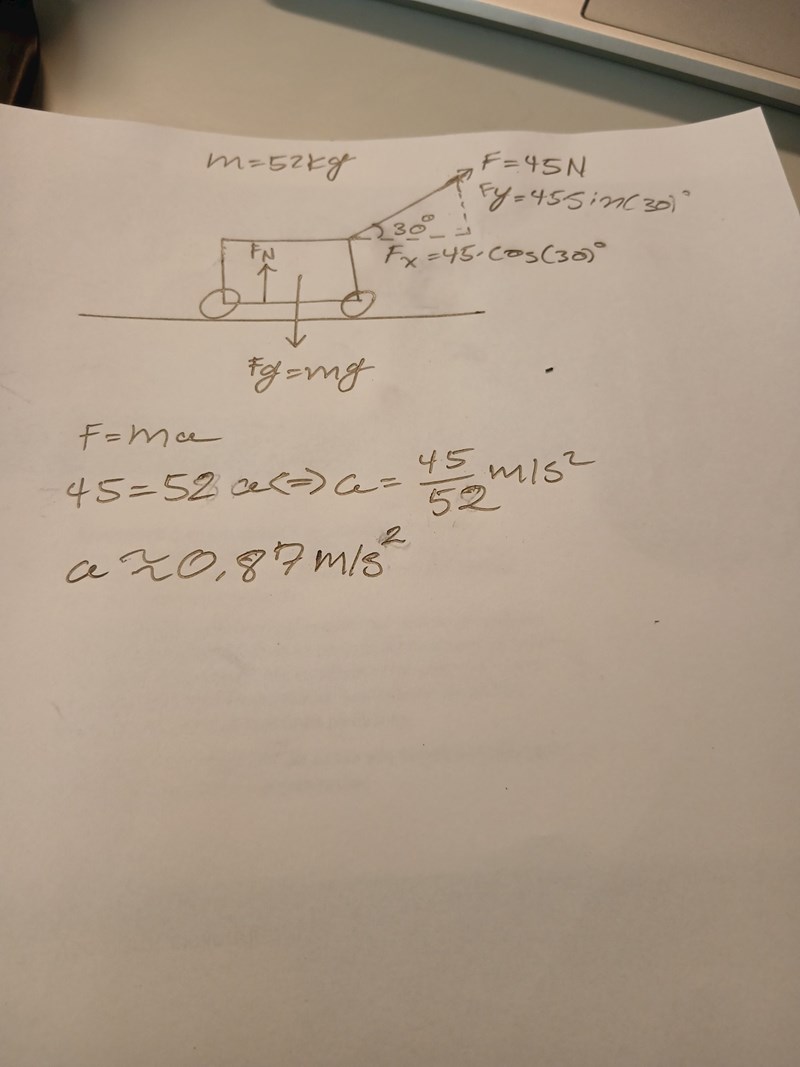 m=52kg
F=45N
Fy=45Sin(30)°
30°
Fx=45·Cos(30)°
FN
Fg=mg
F=ma
45=52a<=>a=45/52 m/s²
a≈0,87m/s²